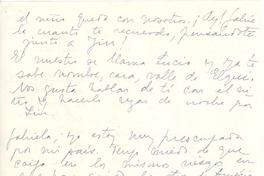 el niño queda con nosotros. ¡Ay! Gabrie
la cuanto te recuerdo, pensándote
junto a Jin!
El nuestro se llama Lucio y ya te
sabe nombre, cara, valle de Elqui.
Nos gusta hablar de ti con el
y hacerlo rezar de noche por
Jin.
Gabriela, yo estoy muy preocupada
por mi país. Tengo miedo de que
caiga en los mismos riesgos en